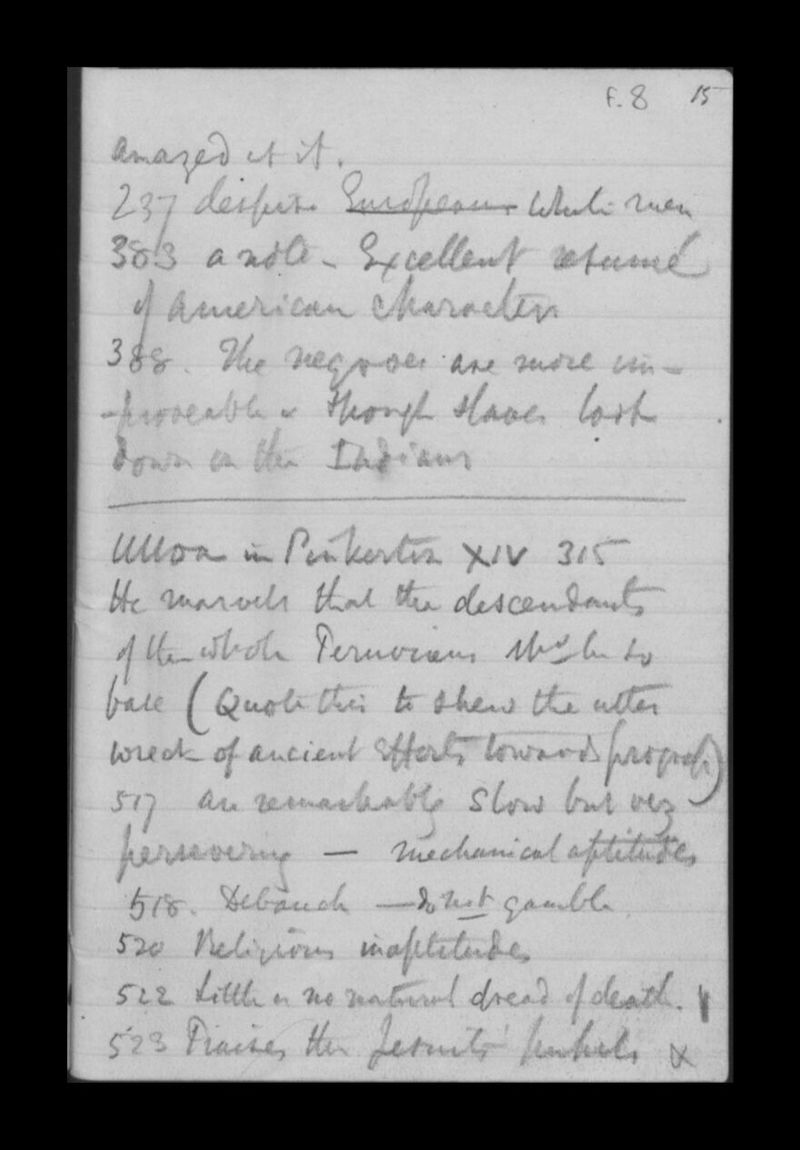 F. 8 15
amazed at it.
237 despise Europeans White men
383 a note - Excellent resumé
of American character
388. The negroes are more im-
-proveable & though slaves look
down on the Indians
Ulloa in Pinkerton XIV 315
He marvels that the descendants
of the whole Peruvians shd be so
base (Quote this to shew the utter
wreck of ancient efforts towards progress)
517 are remarkably slow but very
persevering — mechanical aptitudes
518. Debauch — do not gamble
520 Religious inaptitudes
522 Little or no natural dread of death.
523 Praises the Jesuits' pupils X